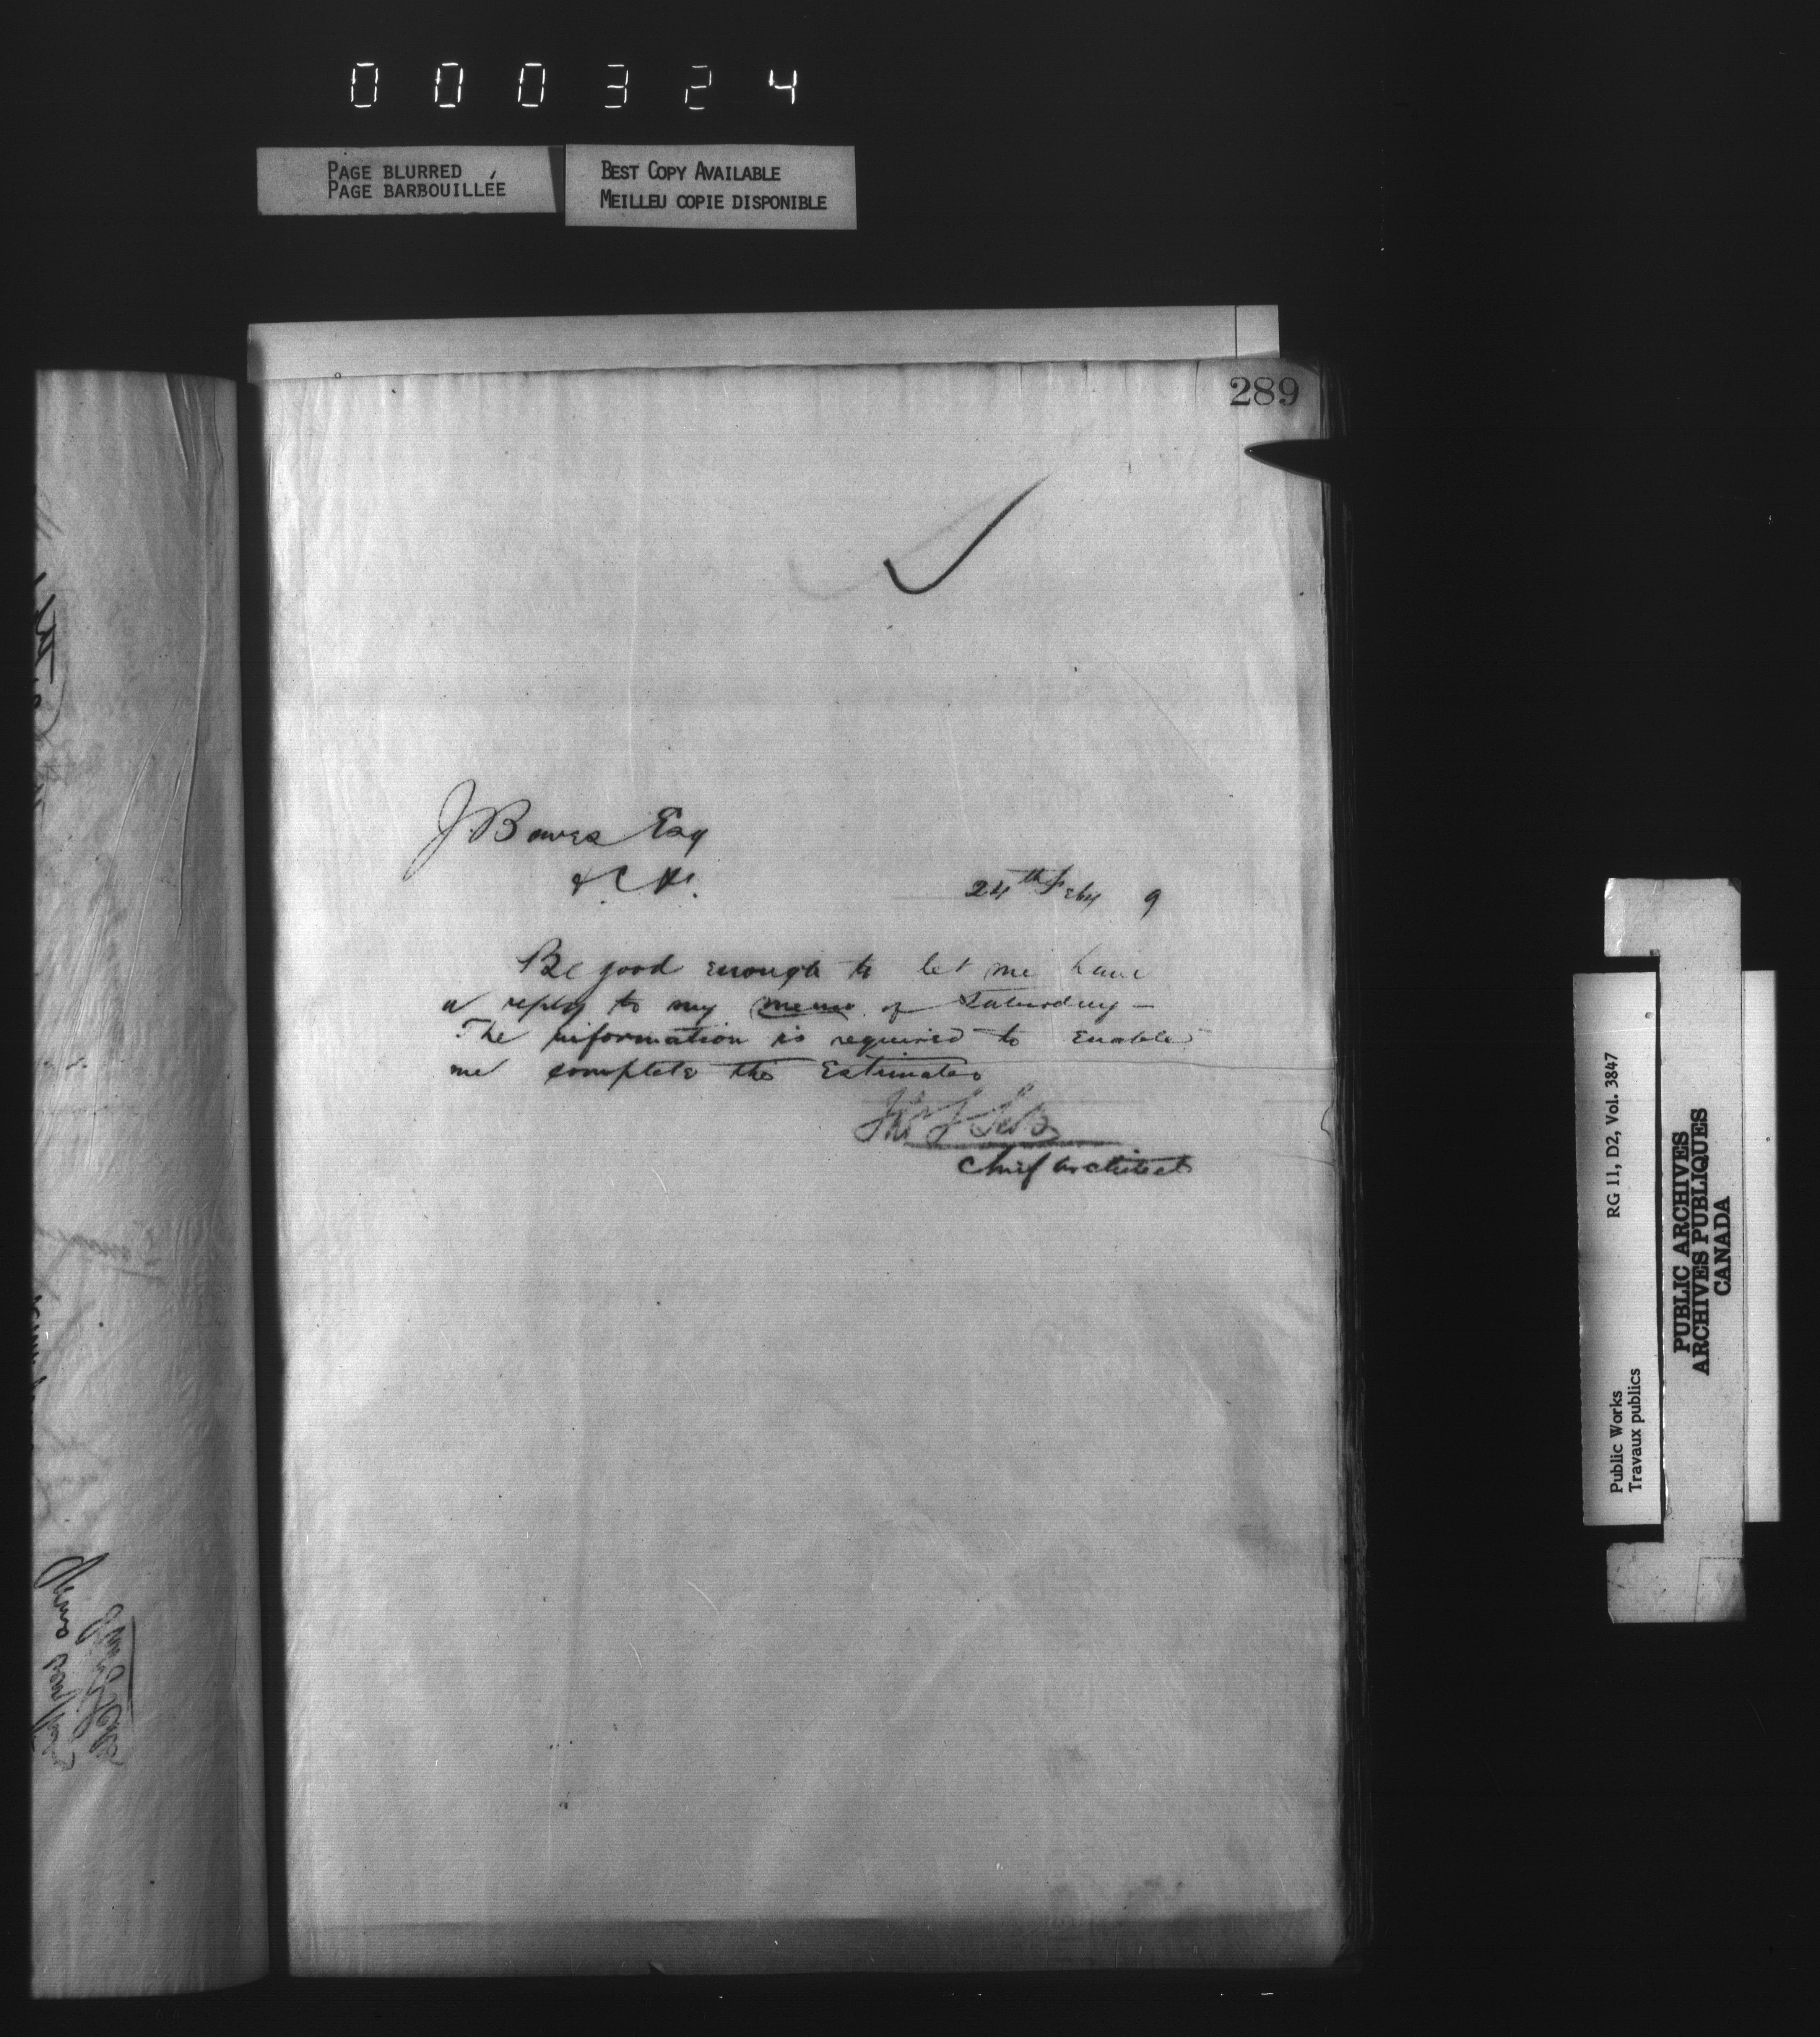 000324
PAGE BLURRED
PAGE BARBOUILLÉE
BEST COPY AVAILABLE
MEILLEU COPIE DISPONIBLE
289
J. Bowes Esq
24th Feby 9
Be good enough to let me have
a reply to my memo of Saturday –
The information is required to enable
me complete the Estimates
Chief Architect
Public Works
Travaux publics
RG 11, D2, Vol. 3847
PUBLIC ARCHIVES
ARCHIVES PUBLIQUES
CANADA